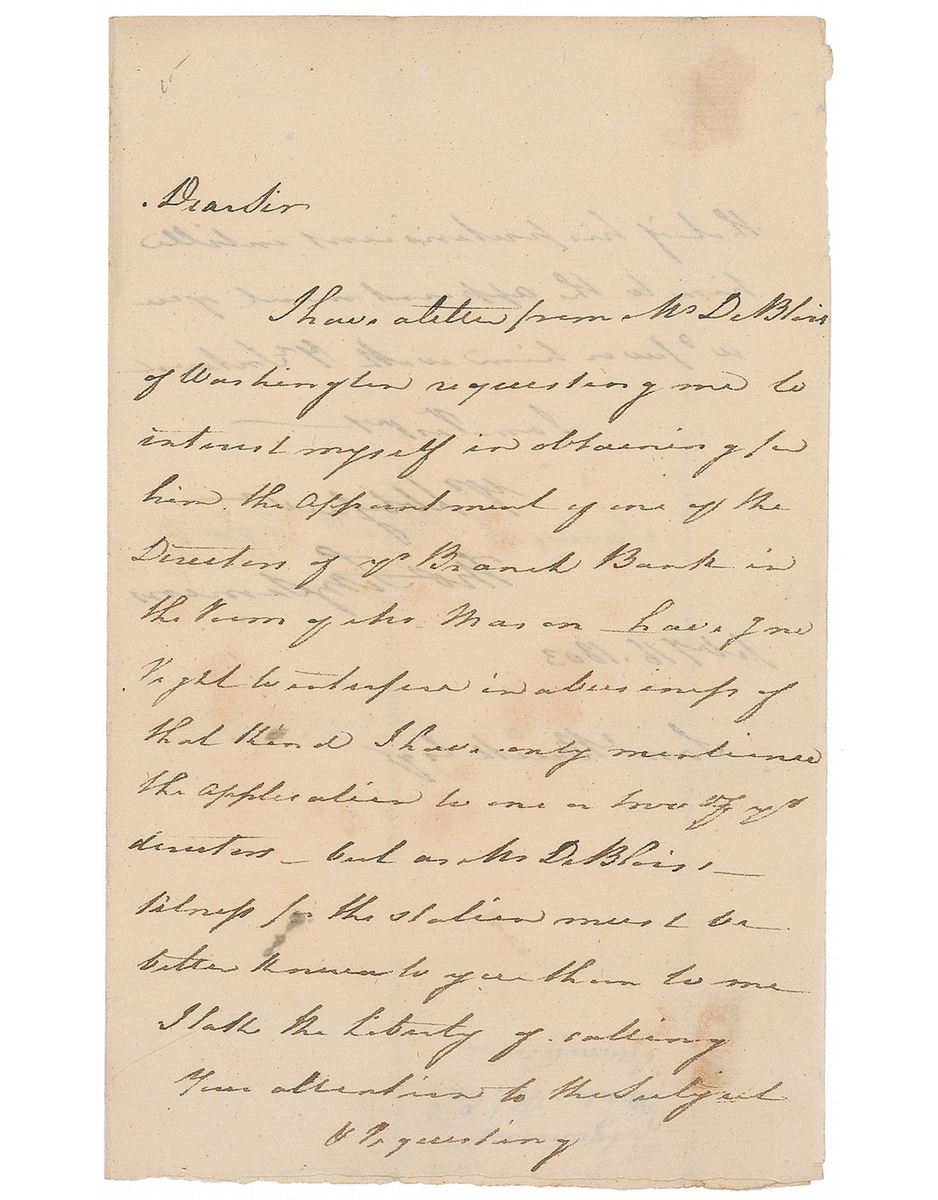 Dear Sir
I have a letter from Mr DeBlois
of Washington requesting me to
interest myself in obtaining for
him the appointment of one of the
Directors of ye Branch Bank in
the room of Mr Mason
right to interfere in a business of
that Kind I have only mentioned
the application to one or two of ye
directors – but as Mr DeBlois's
fitness for the station must be
better known to you than to me
I take the liberty of calling
Your attention to the Subject
& requesting